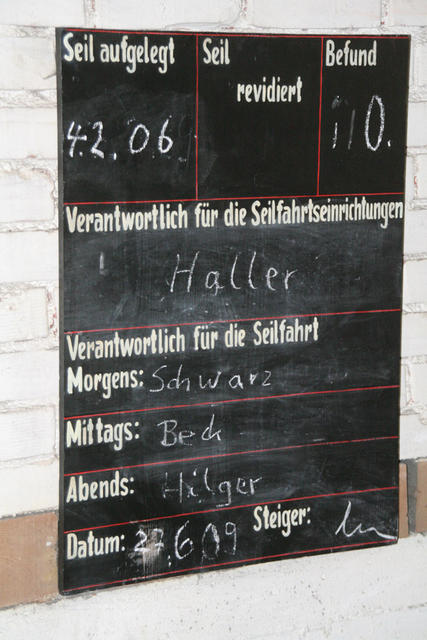 Seil aufgelegt Seil revidiert Befund
4.2.06 i.O.
Verantwortlich für die Seilfahrtseinrichtungen
Haller
Verantwortlich für die Seilfahrt
Morgens: Schwarz
Mittags: Beck
Abends: Hilger
Datum: 27.6.09 Steiger: